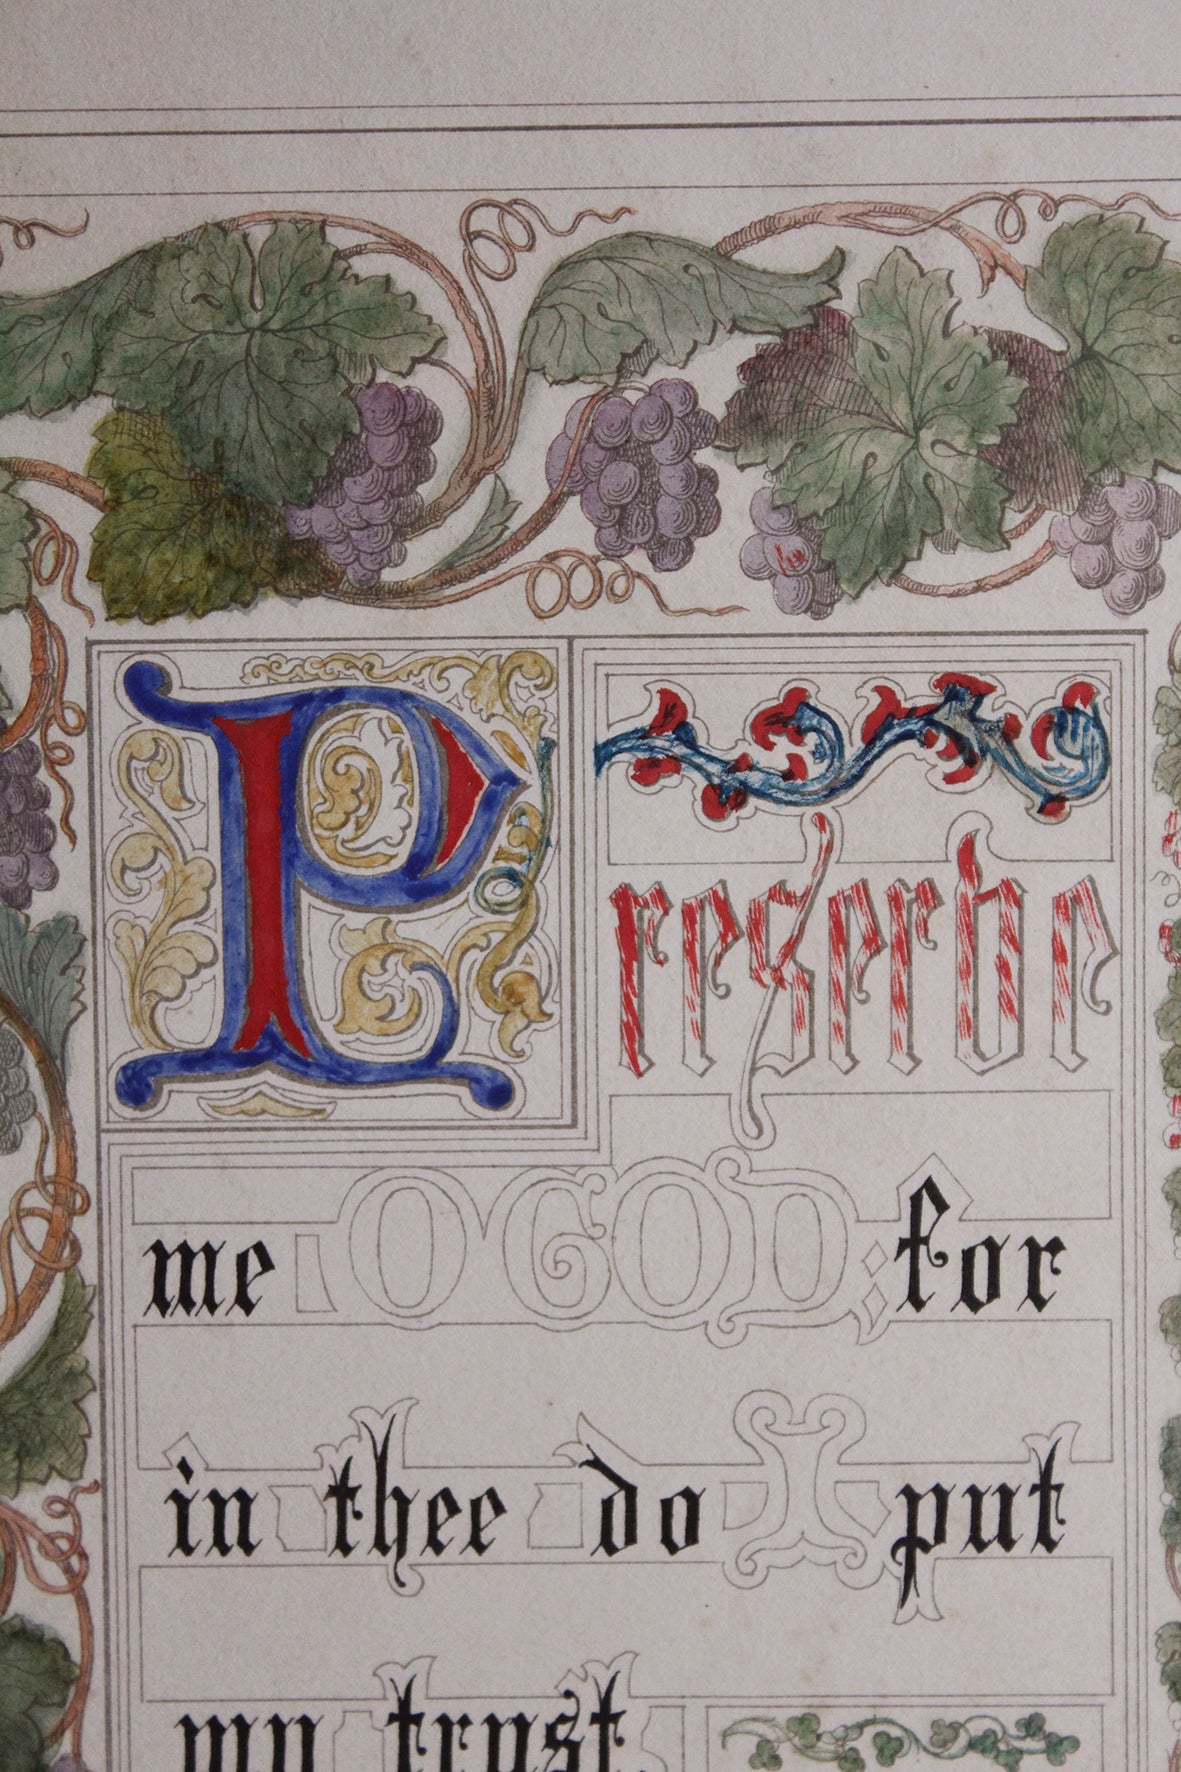 Preserve
me O GOD; for
in thee do I put
my trust.